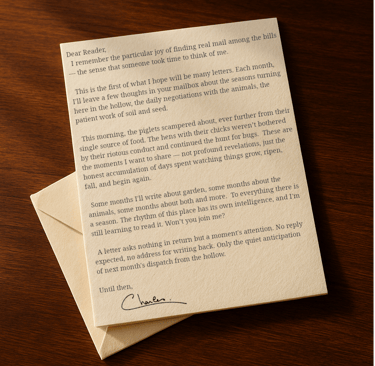 Dear Reader,
I remember the particular joy of finding real mail among the bills
— the sense that someone took time to think of me.
This is the first of what I hope will be many letters. Each month,
I'll leave a few thoughts in your mailbox about the seasons turning
here in the hollow, the daily negotiations with the animals, the
patient work of soil and seed.
This morning, the piglets scampered about, ever further from their
single source of food. The hens with their chicks weren't bothered
by their riotous conduct and continued the hunt for bugs. These are
the moments I want to share — not profound revelations, just the
honest accumulation of days spent watching things grow, ripen,
fall, and begin again.
Some months I'll write about garden, some months about the
animals, some months about both and more. To everything there is
a season. The rhythm of this place has its own intelligence, and I'm
still learning to read it. Won't you join me?
A letter asks nothing in return but a moment's attention. No reply
expected, no address for writing back. Only the quiet anticipation
of next month's dispatch from the hollow.
Until then,
Charles.